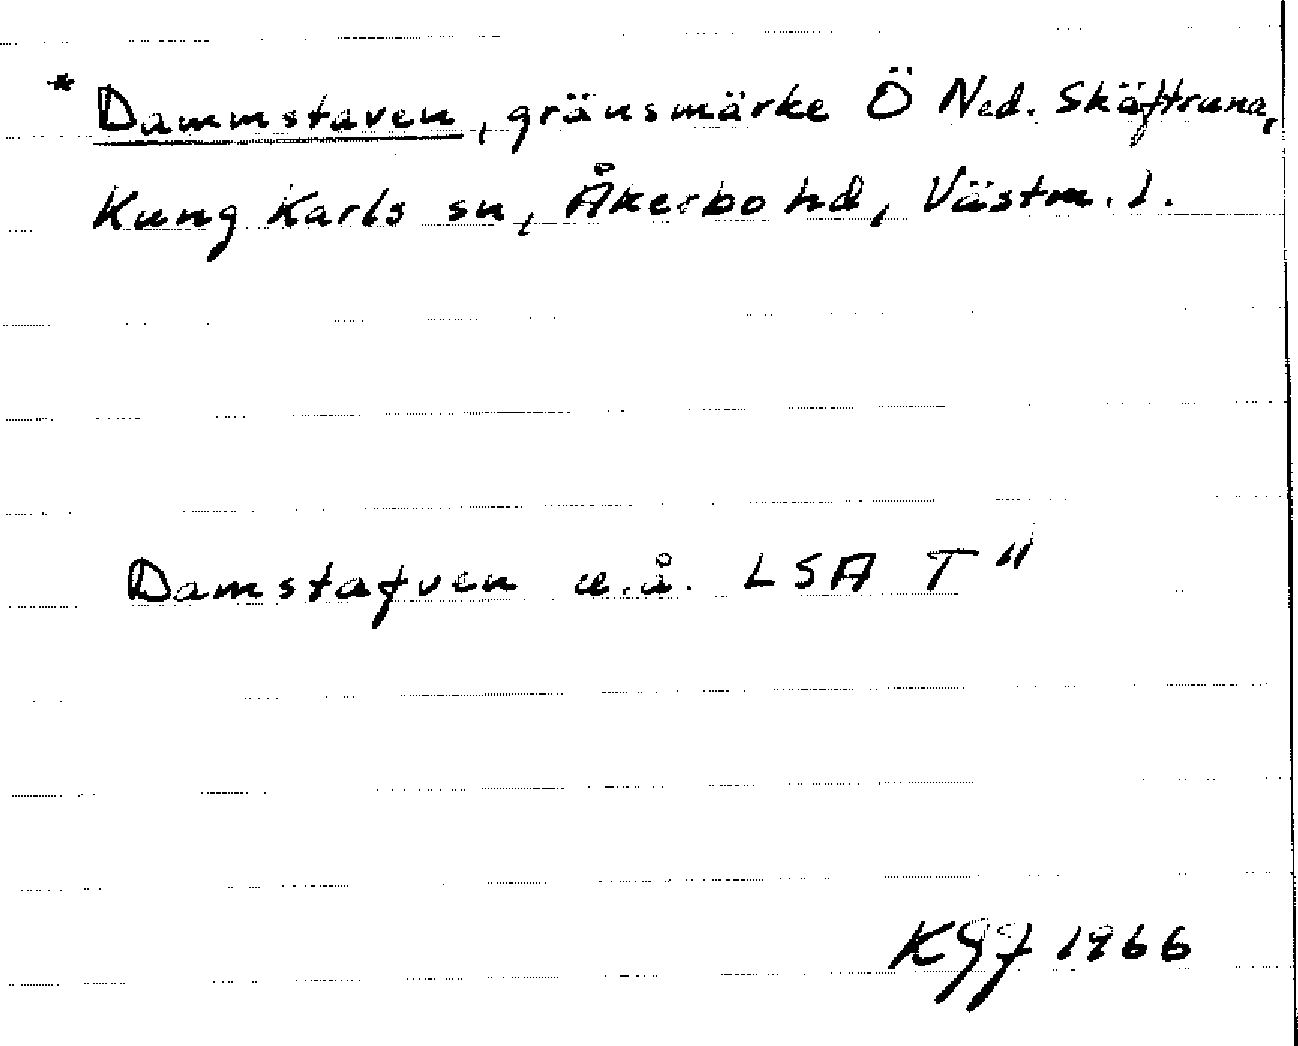 * Dammstaven, gränsmärke Ö Ned. Skäftruna,
Kung Karls sn, Åkerbo hd, Västm. l.
Damstafven u.å. LSA T"
KGJ 1966